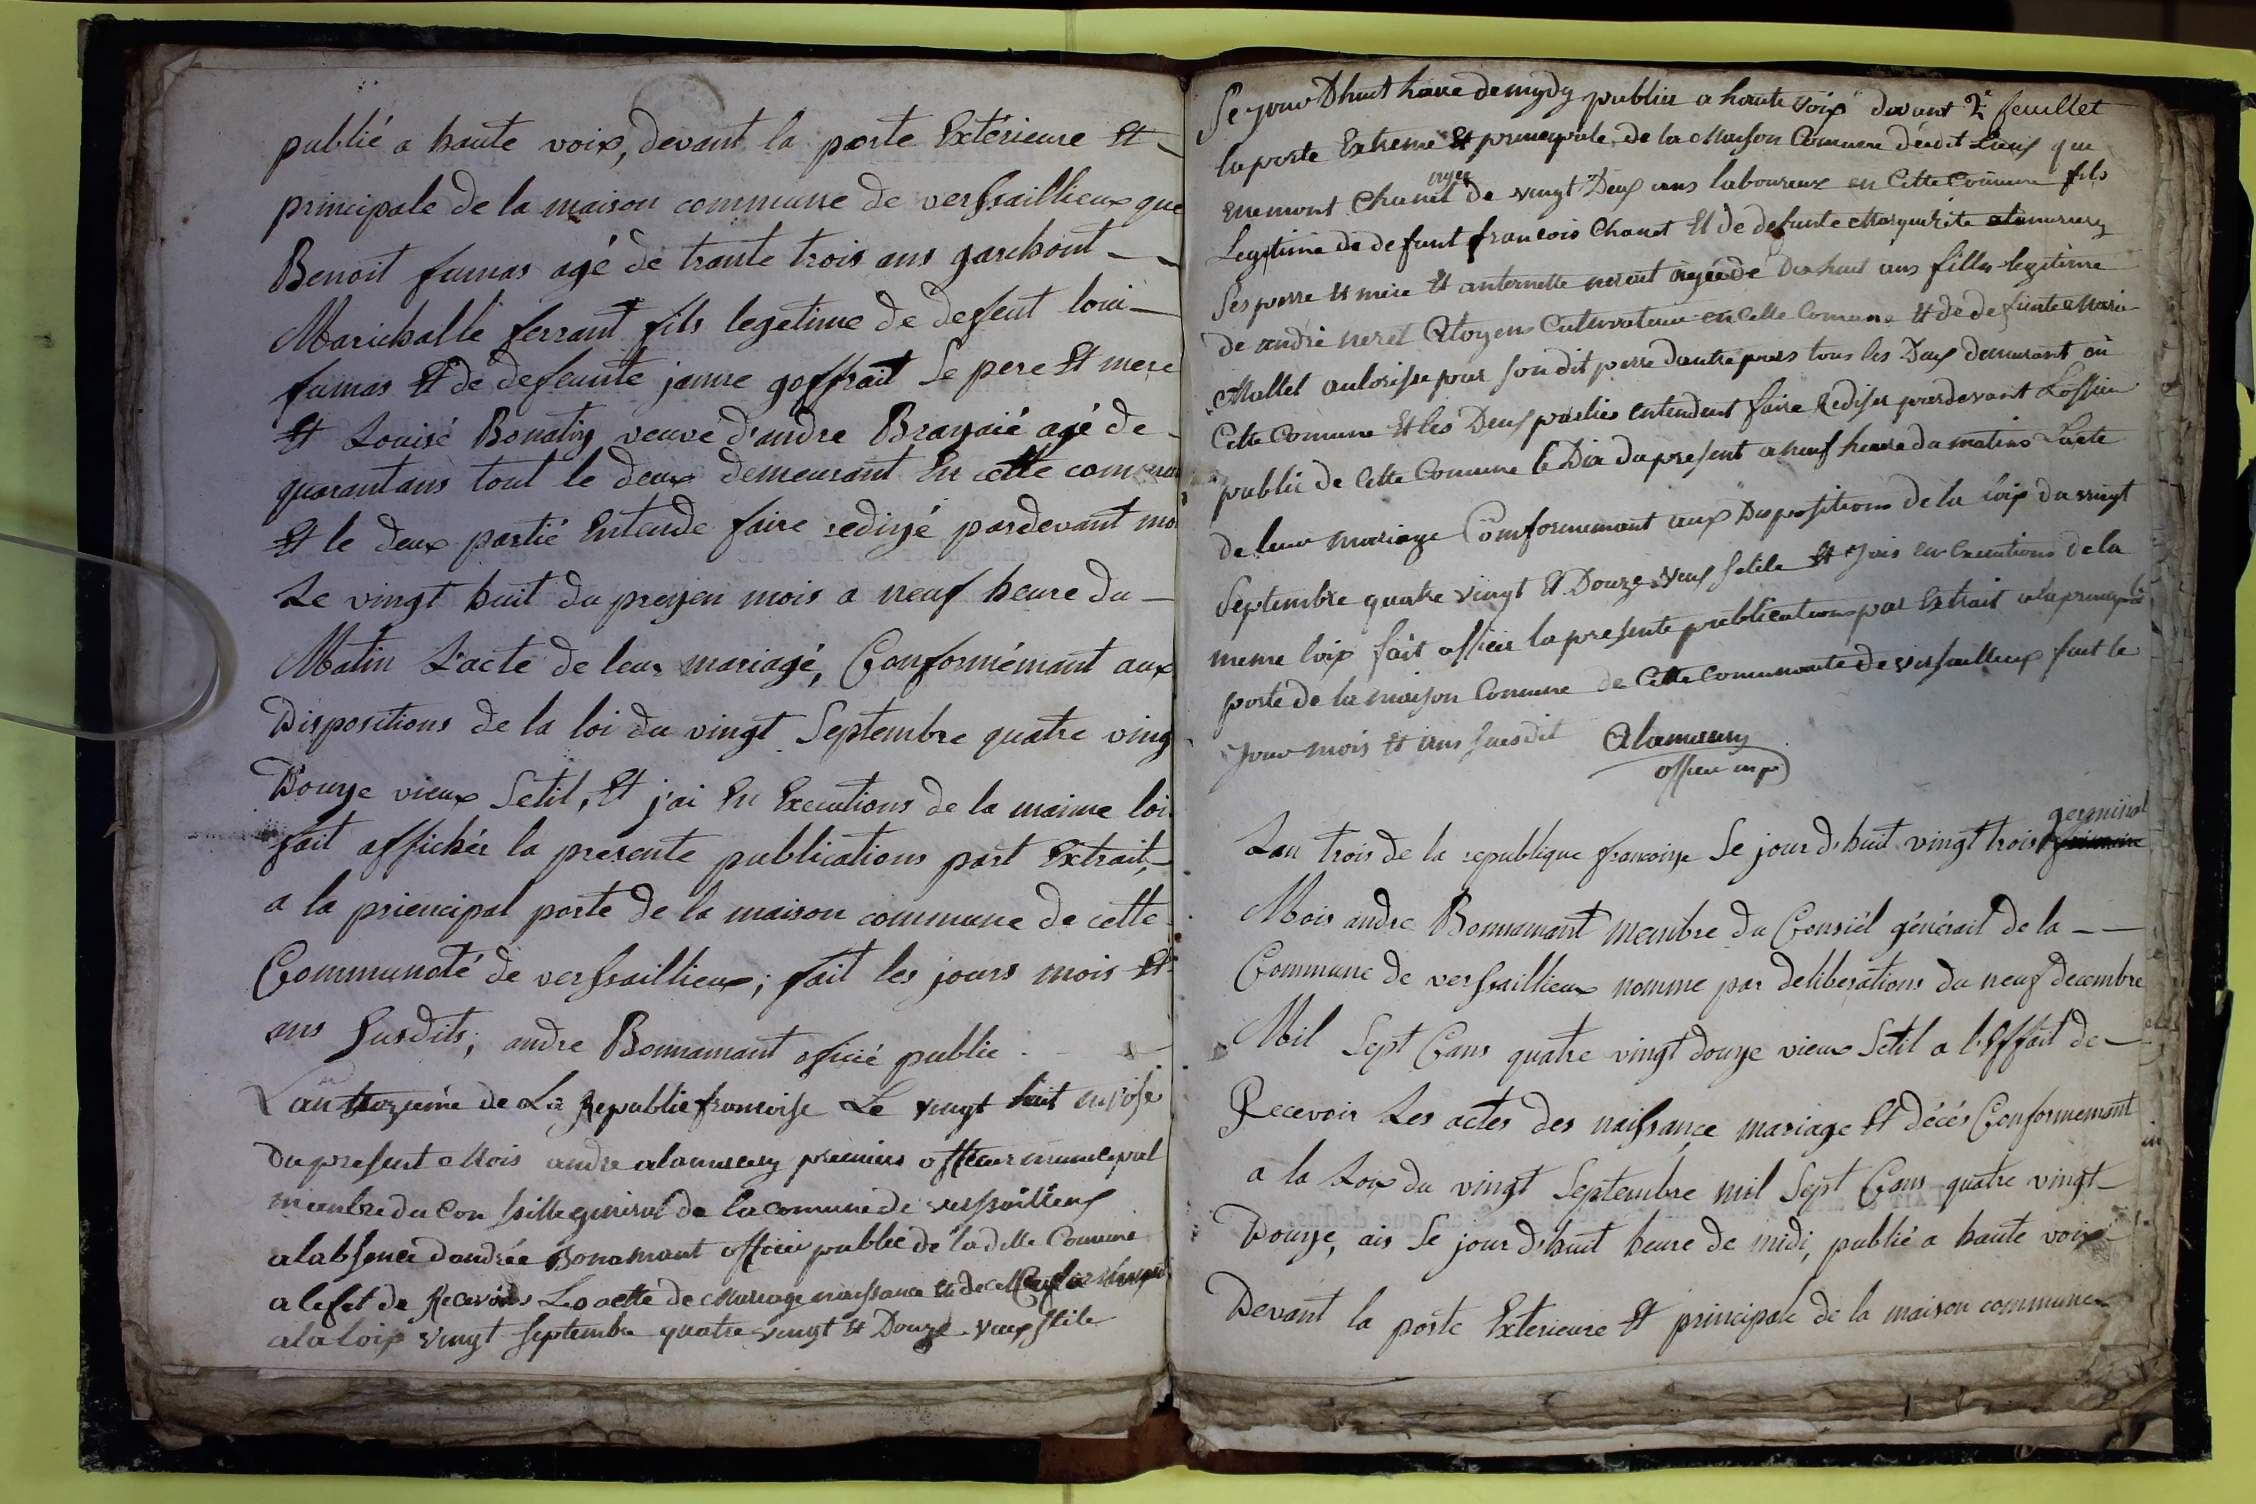 publié a haute voix, devant la porte Extérieure Et
principale de la maison commune de verssaillieux que
Benoit fumas agé de trante trois ans garchont
Marichalle ferrant fils legetime de defent loui
fumas Et de defeunte janne goffrait Se pere Et mere
Et Louise Bonatin veuve d'andre Brayaié agé de
quarantans tout le deux demeurant En cette commune
Et le deux partié Entende faire redigé pardevant moi
Le vingt huit du preyen mois a neuf heure du
Matin L'acte de leur mariagé, Conformément aux
Dispositions de la loi du vingt Septembre quatre ving
Douye vieux Setil, Et j'ai En Executions de la maime loi
fait affichér la presente publications part Extrait,
a la priencipal porte de la maison commune de cette
Communoté de verssaillieux; fait les jours mois Et
ans Susdits; andre Bonnamant oficié public.
L'an de La Republie francoisse Le vingt huit
Du present Mois andre alamercery premiers officier municepal
membre du Con seille general de la comune de verssailleux
a labsence dandrée Bonamant officier publec de la ditte Comune
a lefet de Recevoirs La actte de Mariage naissance Et deces Conformement
a la loix vingt septembre quatre vingt Et Douze vieux stile
2e feuillet
Se jour Dhuit heure de mydy publier a haute voix devant
la porte Extreme Et princypale de la Maison Comune dudit Lieux que
enemont Chanet agee de vingt Deux ans laboureux en Cette Comune fils
Legitime de defunt francois Chanet Et de defunte Marguerite alamercery
Ses perre Et mere Et anternette neret agée de Dix huit ans fille legitime
de andré neret Citoyens Cultivateur en Cette Comune Et de defunte Marie
Mallet autorisse pour son dit perre dautre pars tous les Deux demurant en
Cette Comune Et les Deux parties entendent faire Rediser pardevant Loffisier
public de Cette Comune le Dix du present a neuf heure du matins Lacte
de leur mariage Comformemant aux Dispositions de la loix du vingt
Septembre quatre vingt Et Douze vieux stile Et Jais en Executions de la
meme loix fait afficer la presente publications par Extrait a la princypale
porte de la maison Comune de Cette Communaute de versailleux fait le
Jour mois Et ans suesdit Alamercery
officier mp
germinal
Lan trois de la republique francoisse Se jour d'huit vingt trois
Mois andre Bonnamant membre du Consiél générait de la
Commune de verssaillieux nomme par deliberations du neuf decembre
Mil Sept Cans quatre vingt douye vieux Setil a l'Effait de
Recevoir Les actes des naissance mariage Et décés Conformemant
a la Loix du vingt Septembre mil Sept Cans quatre vingt
Douye, ais Se jour d'huit heure de midi, publié a haute voix
Devant la porte Exterieure Et principale de la maison commune